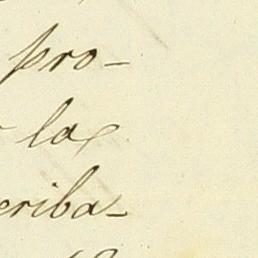 pro-
la
eriba-